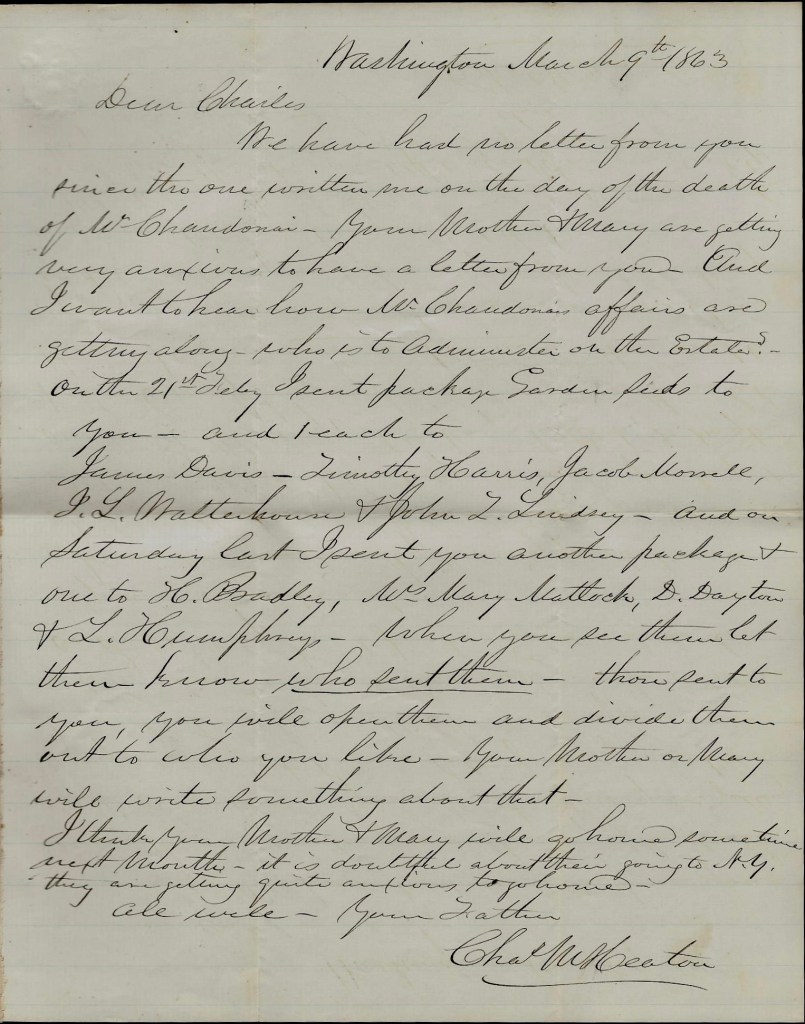 Washington March 9th 1863
Dear Charles
We have had no letter from you
since the one written me on the day of the death
of Mr Chandonai - Your Mother & Mary are getting
very anxious to have a letter from you - And
I want to hear how Mr Chandonais affairs are
getting along - who is to Administer on the Estate? -
On the 21st Feby I sent package Garden Seeds to
you - and 1 each to
James Davis - Timothy Harris, Jacob Morrell,
J. L. Walterhouse & John L. Lindsey - and on
Saturday last I sent you another package &
one to H. Bradley, Mrs Mary Matlock, D. Dayton
& L. Humphreys - When you see them let
them know who sent them - those sent to
you, you will open them and divide them
out to who you like - Your Mother or Mary
will write something about that -
I think Your Mother & Mary will go home sometime
next Month - it is doubtful about their going to N.Y.
they are getting quite anxious to go home -
All well - Your Father
Chas M Heaton